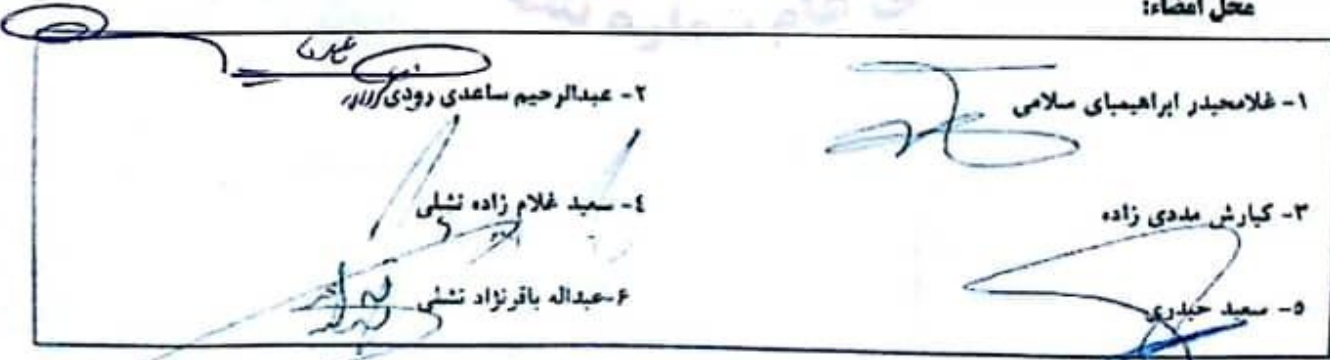 محل امضاء:
۱- غلامحیدر ابراهیمبای سلامی
۲- عبدالرحیم ساعدی رودی
۳- کیارش مددی زاده
٤- سعید غلام زاده نشلی
٥- سعید حیدری
۶-عبداله باقرنژاد نشلی